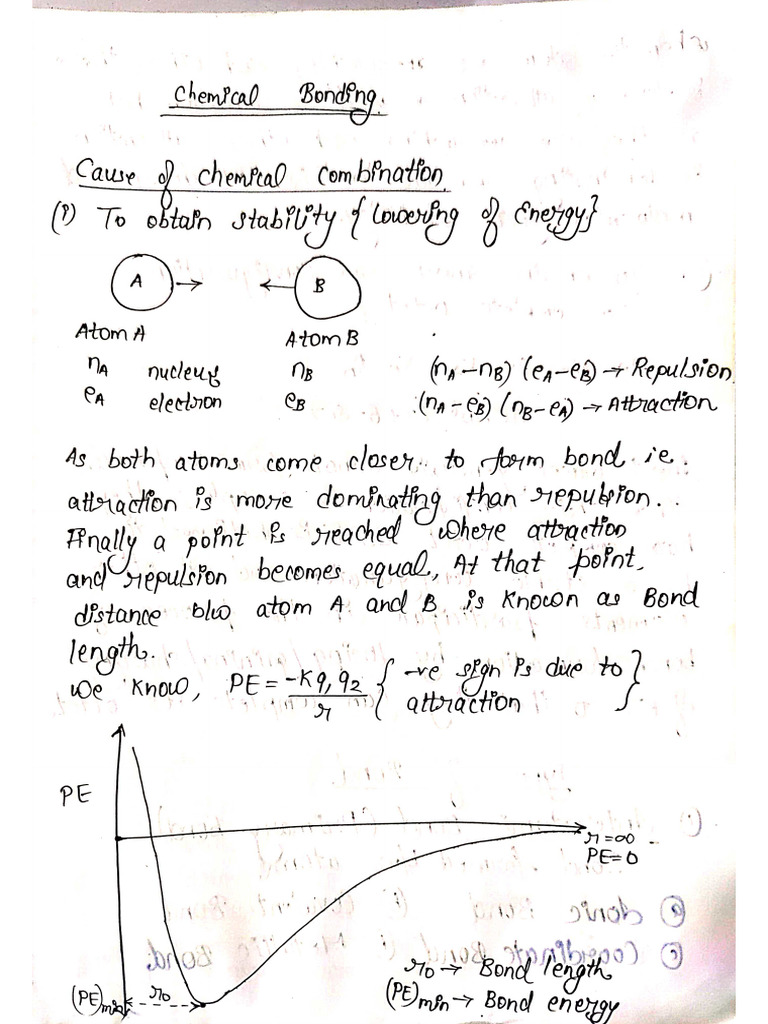 Chemical Bonding.
Cause of chemical combination
(i) To obtain stability {lowering of Energy}
A B
Atom A Atom B
nA nucleus nB (nA-nB) (eA-eB) → Repulsion
eA electron eB (nA-eB) (nB-eA) → Attraction
As both atoms come closer to form bond ie.
attraction is more dominating than repulsion..
Finally a point is reached where attraction
and repulsion becomes equal, At that point,
distance b/w atom A and B is known as Bond
length.
We know, PE = -Kq1q2/r {-ve sign is due to attraction}
PE
r=∞
PE=0
r0 → Bond length
(PE)min r0 (PE)min → Bond energy
(i)
(a) Ionic Bond
(c) Coordinate Bond Bond